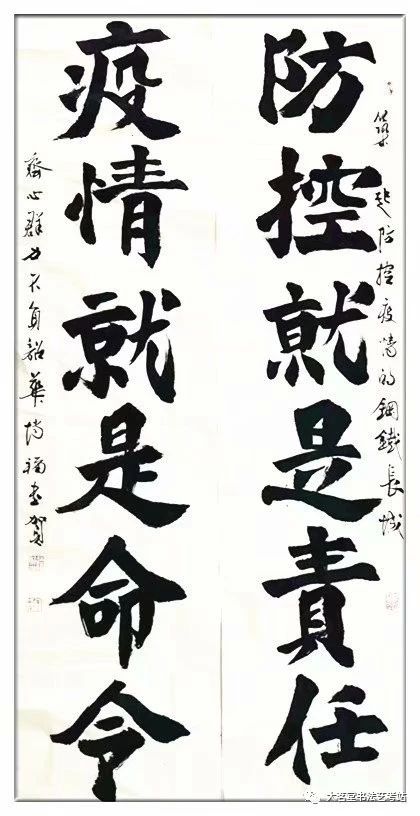 筑起防控疫情的鋼鐵長城
防控就是責任
疫情就是命令
齊心群力不負韶華 福书賀
大茗堂书法艺考站